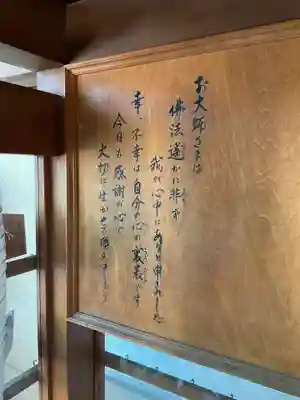 お大師さまは
佛法遙かに非ず
我が心中にありと申ました
幸、不幸は自分の心の裏表です
今日も感謝の心で
大切に生かせて頂きましょう